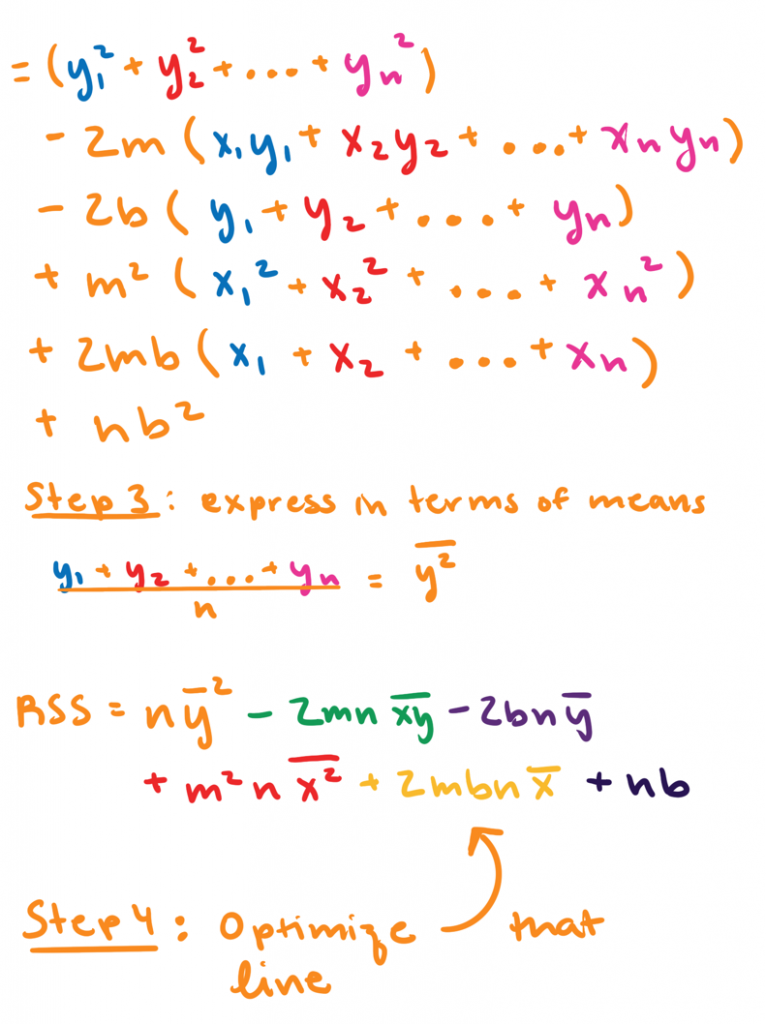 = (y₁² + y₂² + ... + yₙ²)
- 2m (x₁y₁ + x₂y₂ + ... + xₙyₙ)
- 2b (y₁ + y₂ + ... + yₙ)
+ m² (x₁² + x₂² + ... + xₙ²)
+ 2mb (x₁ + x₂ + ... + xₙ)
+ nb²
Step 3: express in terms of means
(y₁ + y₂ + ... + yₙ)/n = \overline{y²}
RSS = n\overline{y}² - 2mn\overline{xy} - 2bn\overline{y}
+ m²n\overline{x²} + 2mbn\overline{x} + nb
Step 4: Optimize that
line